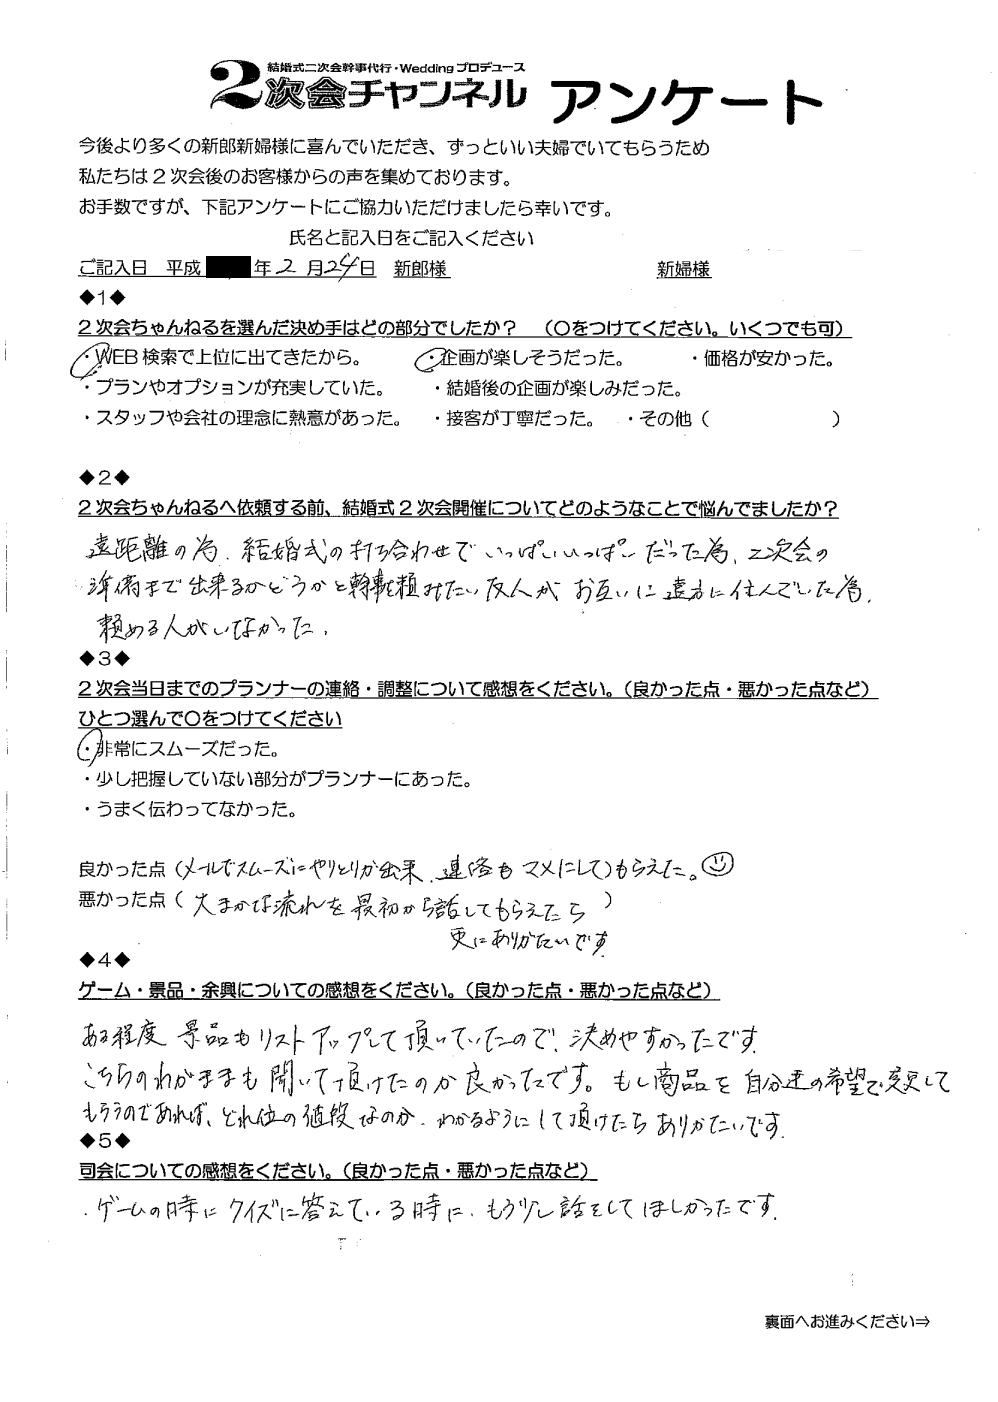 結婚式二次会幹事代行・Weddingプロデュース
2次会チャンネル アンケート
今後より多くの新郎新婦様に喜んでいただき、ずっといい夫婦でいてもらうため
私たちは２次会後のお客様からの声を集めております。
お手数ですが、下記アンケートにご協力いただけましたら幸いです。
氏名と記入日をご記入ください
ご記入日 平成 年 2 月 24 日 新郎様 新婦様
◆１◆
２次会ちゃんねるを選んだ決め手はどの部分でしたか？ （〇をつけてください。いくつでも可）
・WEB検索で上位に出てきたから。 ・企画が楽しそうだった。 ・価格が安かった。
・プランやオプションが充実していた。 ・結婚後の企画が楽しみだった。
・スタッフや会社の理念に熱意があった。 ・接客が丁寧だった。 ・その他（ ）
◆２◆
２次会ちゃんねるへ依頼する前、結婚式２次会開催についてどのようなことで悩んでましたか？
遠距離の為、結婚式の打ち合わせでいっぱいいっぱいだった為、二次会の
準備まで出来るかどうかと 頼みたい友人が お互いに遠方に住んでいた為、
頼める人がいなかった。
◆３◆
２次会当日までのプランナーの連絡・調整について感想をください。（良かった点・悪かった点など）
ひとつ選んで〇をつけてください
・非常にスムーズだった。
・少し把握していない部分がプランナーにあった。
・うまく伝わってなかった。
良かった点（メールでスムーズにやりとりが出来、連絡もマメにして）もらえた。
悪かった点（ 大まかな流れを最初から話してもらえたら ）
更にありがたいです
◆４◆
ゲーム・景品・余興についての感想をください。（良かった点・悪かった点など）
ある程度 景品もリストアップして頂いていたので、決めやすかったです。
こちらのわがままも聞いて頂けたのが良かったです。もし商品を自分達の希望で変更して
もらうのであれば、どれ位の値段なのか、わかるようにして頂けたらありがたいです。
◆５◆
司会についての感想をください。（良かった点・悪かった点など）
・ゲームの時にクイズに答えている時に、もう少し話をしてほしかったです。
裏面へお進みください⇒